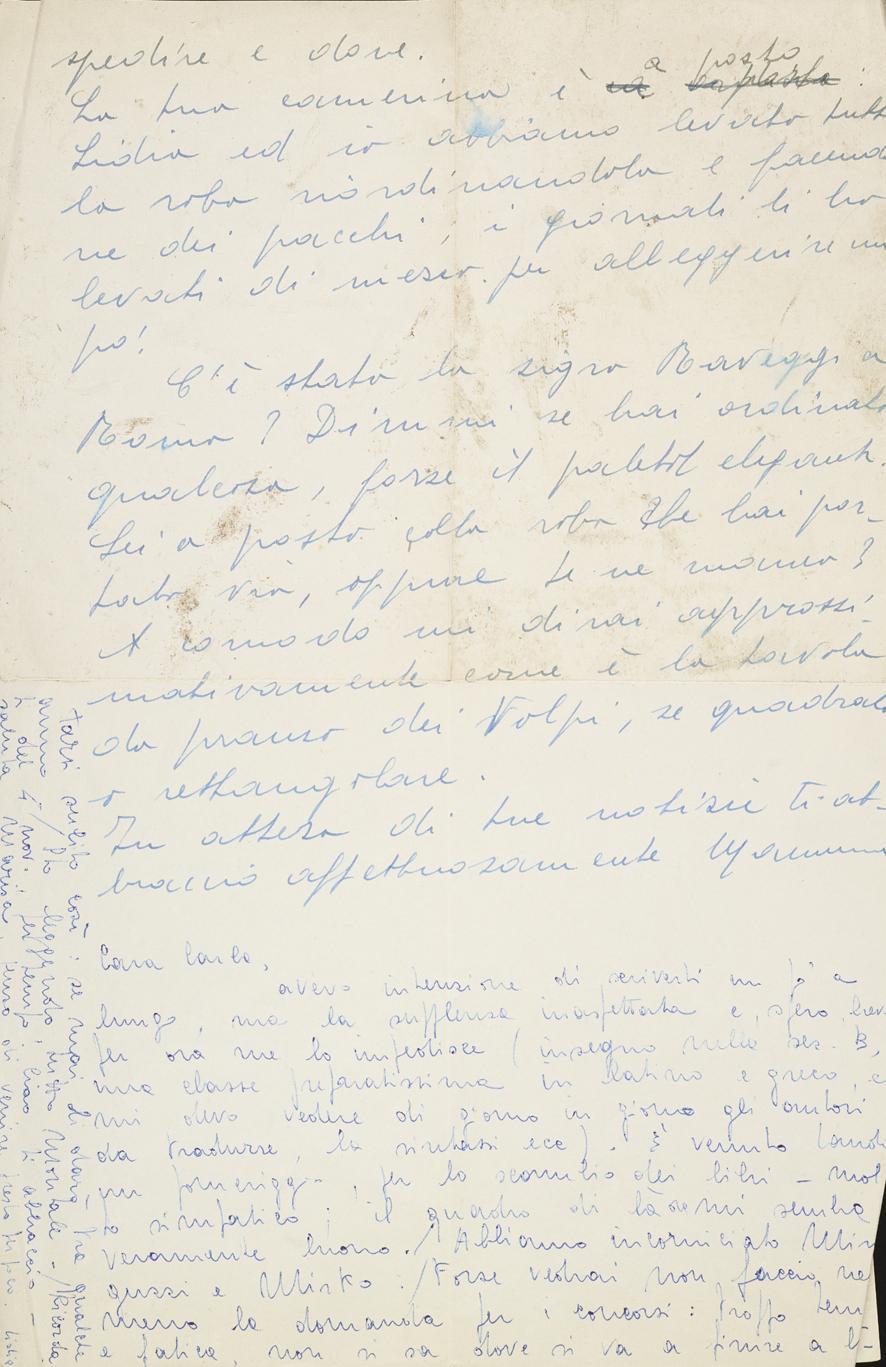 spedire e dove.
La tua camerina è a posto :
Lidia ed io abbiamo levato tutt
la roba riordinandola e facendo
ne dei pacchi, i giornali li ho
levati di mezzo per alleggerire un
po'!
C'è stata la sigra Raveggi a
Roma? Dimmi se hai ordinato
qualcosa, forse il paletot elegant.
Sei a posto colla roba che hai por-
tato via, oppure te ne manca?
A comodo mi dirai approssi-
mativamente come è la tavola
da pranzo dei Volpi, se quadrata
o rettangolare.
In attesa di tue notizie ti ab-
braccio affettuosamente Mamma
Caro Carlo,
avevo intenzione di scriverti un po' a
lungo, ma la supplenza inaspettata e, spero,
per ora me lo impedisce (insegno nella sez. B,
una classe preparatissima in latino e greco, e
mi devo vedere di giorno in giorno gli autori
da tradurre, la sintassi ecc). È venuto
un pomerigg. , per lo scambio dei libri - mol
to simpatico; il quadro di semi sembra
veramente buono. / Abbiamo incorniciato Min
guzzi e Mirko. / Forse vedrai non faccio ne
meno la domanda per i concorsi: troppo tem
e fatica, non si sa dove si va a finire a
tarsi subito così: se mai di darà tra qualche
anno / Ho leggiucchiato Montale - / Ricorda
ti del 4 nov. ! per tempo. Ciao ti abbraccio -
saluta Marisa, penso di venire presto Lidia